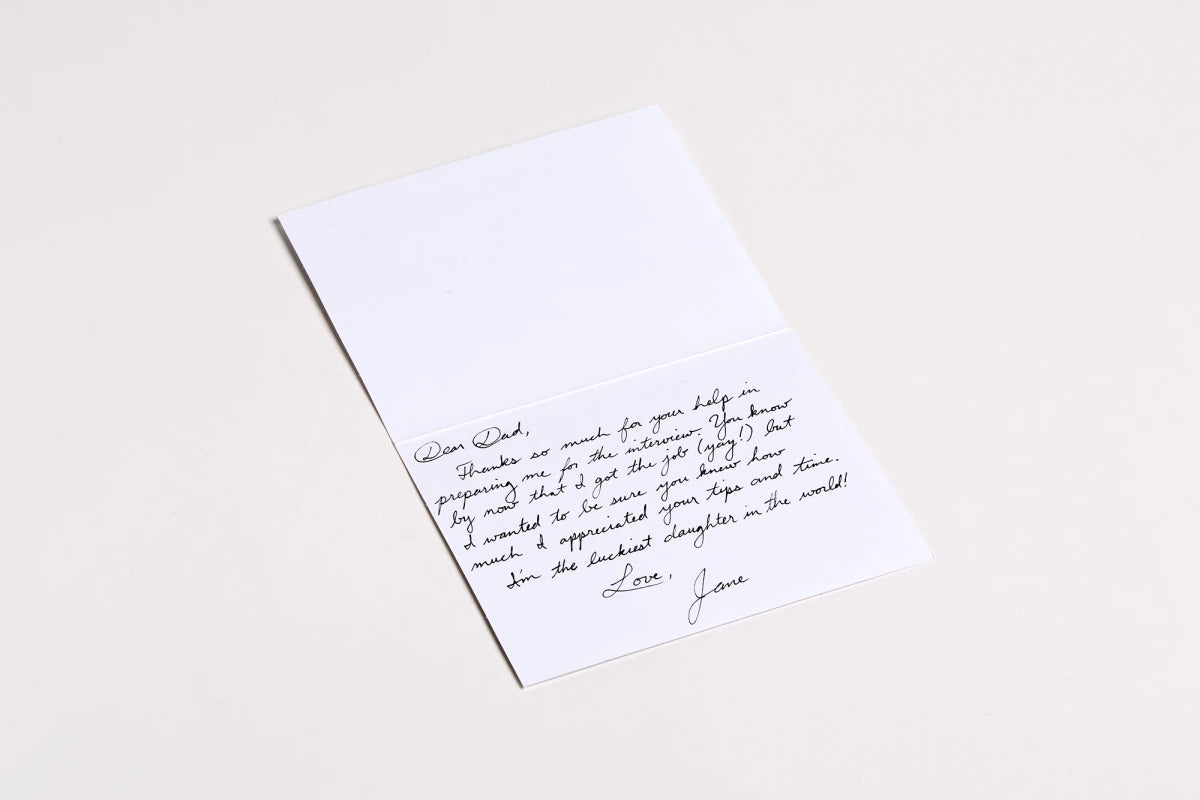 Dear Dad,
Thanks so much for your help in
preparing me for the interview. You know
by now that I got the job (yay!) but
I wanted to be sure you knew how
much I appreciated your tips and time.
I'm the luckiest daughter in the world!
Love,
Jane